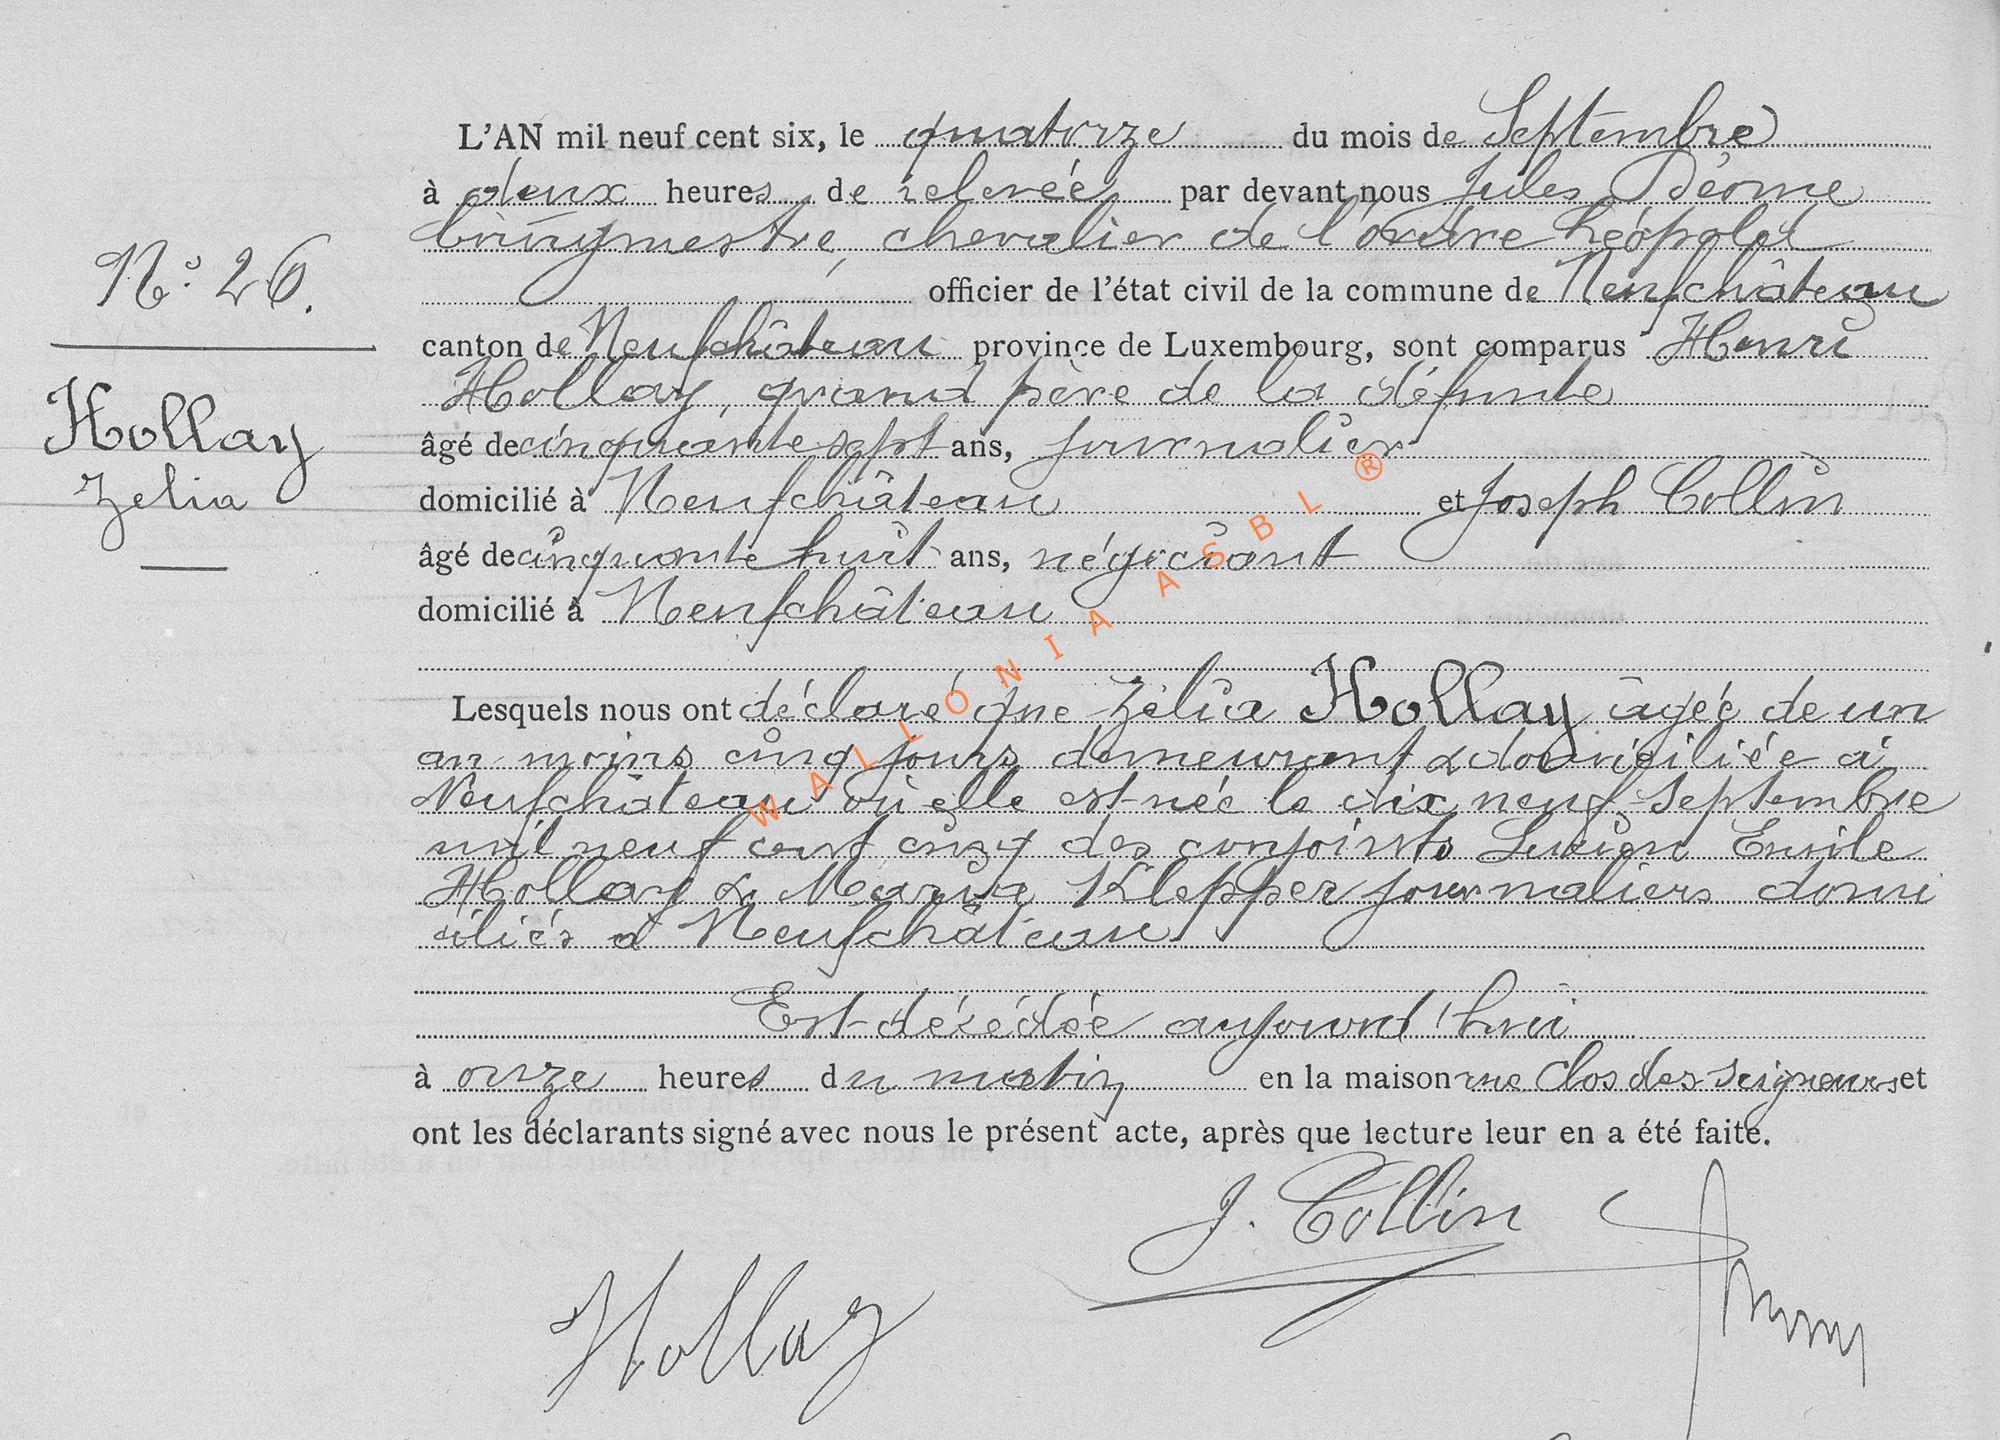 L'AN mil neuf cent six, le quatorze du mois de Septembre
à deux heures de relevée par devant nous Jules Déome
bourgmestre, chevalier de l'ordre Léopold
N° 26.
officier de l'état civil de la commune de Neufchâteau
canton de Neufchâteau province de Luxembourg, sont comparus Henri
Hollay, grand père de la défunte
Hollay
Zelia
âgé de cinquante sept ans, journalier
domicilié à Neufchâteau et Joseph Collin
âgé de cinquante huit ans, négociant
domicilié à Neufchâteau
Lesquels nous ont déclaré que Zélia Hollay âgée de un
an moins cinq jours demeurant & domiciliée à
Neufchâteau où elle est née le dix neuf septembre
mil neuf cent cinq des conjoints Lucien Emile
Hollay & Maria Klepper journaliers domi
ciliés à Neufchâteau
Est décédée aujourd'hui
à onze heures du matin en la maison rue Clos des seigneurs et
ont les déclarants signé avec nous le présent acte, après que lecture leur en a été faite.
J. Collin
Hollay
WALLONIA ASBL ®